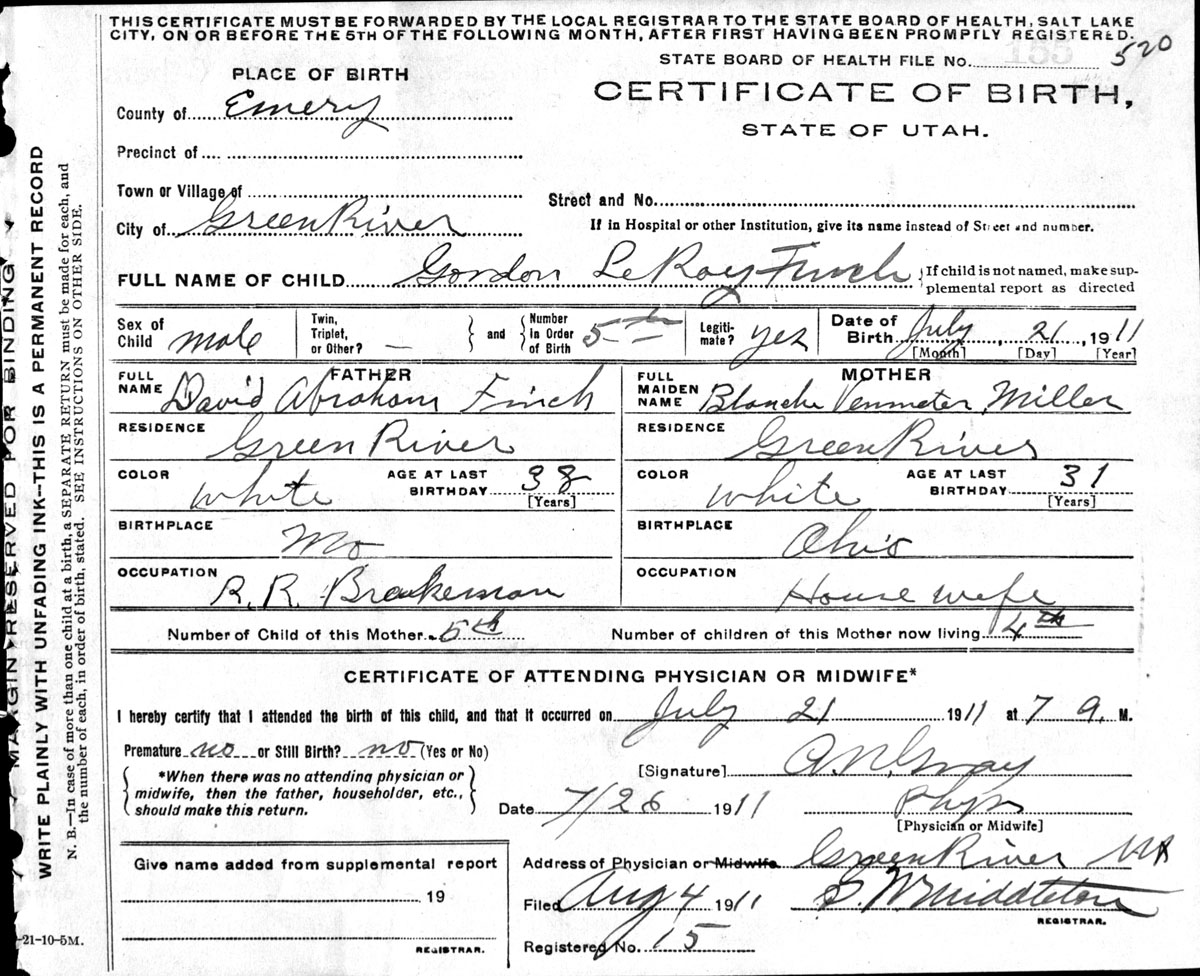 THIS CERTIFICATE MUST BE FORWARDED BY THE LOCAL REGISTRAR TO THE STATE BOARD OF HEALTH, SALT LAKE
CITY, ON OR BEFORE THE 5TH OF THE FOLLOWING MONTH, AFTER FIRST HAVING BEEN PROMPTLY REGISTERED.
155 520
STATE BOARD OF HEALTH FILE No.
PLACE OF BIRTH
CERTIFICATE OF BIRTH,
STATE OF UTAH.
County of Emery
Precinct of
Town or Village of
Street and No.
City of Green River
If in Hospital or other Institution, give its name instead of Street and number.
FULL NAME OF CHILD Gordon LeRoy Finch
{If child is not named, make sup-
plemental report as directed
Sex of Child male
Twin, Triplet, or Other? —
and
Number in Order of Birth 5th
Legiti-mate? yes
Date of Birth July, 21, 1911
[Month] [Day] [Year]
FATHER
FULL NAME David Abraham Finch
MOTHER
FULL MAIDEN NAME Blanche Venmeter Miller
RESIDENCE Green River
RESIDENCE Green River
COLOR White
AGE AT LAST BIRTHDAY 38
[Years]
COLOR White
AGE AT LAST BIRTHDAY 31
[Years]
BIRTHPLACE Mo
BIRTHPLACE Ohio
OCCUPATION R. R. Brakeman
OCCUPATION House wife
Number of Child of this Mother 5th
Number of children of this Mother now living 4th
CERTIFICATE OF ATTENDING PHYSICIAN OR MIDWIFE*
I hereby certify that I attended the birth of this child, and that it occurred on July 21 1911 at 7 a. M.
Premature no or Still Birth? no (Yes or No)
*When there was no attending physician or
midwife, then the father, householder, etc.,
should make this return.
[Signature] Gray
Date 7/26 1911
Phys
[Physician or Midwife]
Give name added from supplemental report
19
REGISTRAR.
Address of Physician or Midwife Green River
Filed Aug 4 1911 S. W. Middleton
REGISTRAR.
Registered No. 15
-21-10-5M.
MARGIN RESERVED FOR BINDING
WRITE PLAINLY WITH UNFADING INK--THIS IS A PERMANENT RECORD
N. B.—In case of more than one child at a birth, a SEPARATE RETURN must be made for each, and
the number of each, in order of birth, stated. SEE INSTRUCTIONS ON OTHER SIDE.